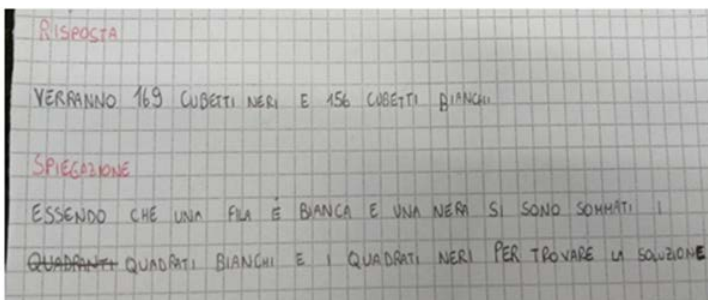 RISPOSTA
VERRANNO 169 CUBETTI NERI E 156 CUBETTI BIANCHI
SPIEGAZIONE
ESSENDO CHE UNA FILA È BIANCA E UNA NERA SI SONO SOMMATI I
QUADRANTI QUADRATI BIANCHI E I QUADRATI NERI PER TROVARE LA SOLUZIONE